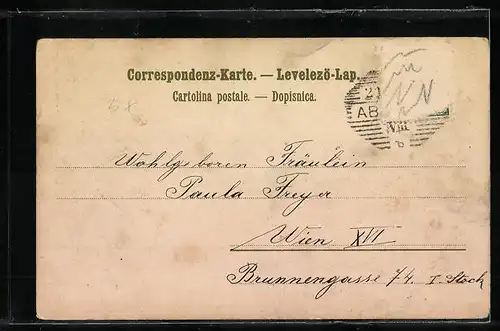 Correspondenz-Karte. — Levelező-Lap.
Cartolina postale. — Dopisnica.
21
AB
VIII
Wohlgeboren Fräulein
Paula Freyer
Wien XVI
Brunnengasse 74. I. Stock